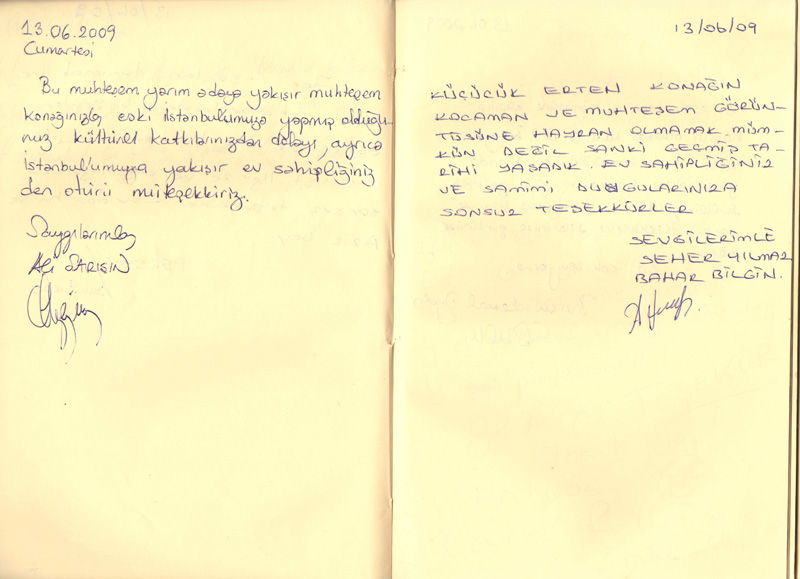 13.06.2009
Cumartesi
Bu muhteşem yarım adaya yakışır muhteşem
konağınızla eski İstanbulumuza yapmış olduğu
nuz kültürel katkılarınızdan dolayı, ayrıca
İstanbul'umuza yakışır ev sahipliğiniz
den ötürü müteşekkiriz.
Saygılarımla
Ali SARIŞIN
13/06/09
KÜÇÜCÜK ERTEN KONAĞIN
KOCAMAN VE MUHTEŞEM GÖRÜN-
TÜSÜNE HAYRAN OLMAMAK MÜM-
KÜN DEĞİL SANKİ GEÇMİŞ TA-
RİHİ YAŞADIK. EV SAHİPLİĞİNİZ
VE SAMİMİ DUYGULARINIZA
SONSUZ TEŞEKKÜRLER
SEVGİLERİMLE
SEHER YILMAZ
BAHAR BİLGİN.